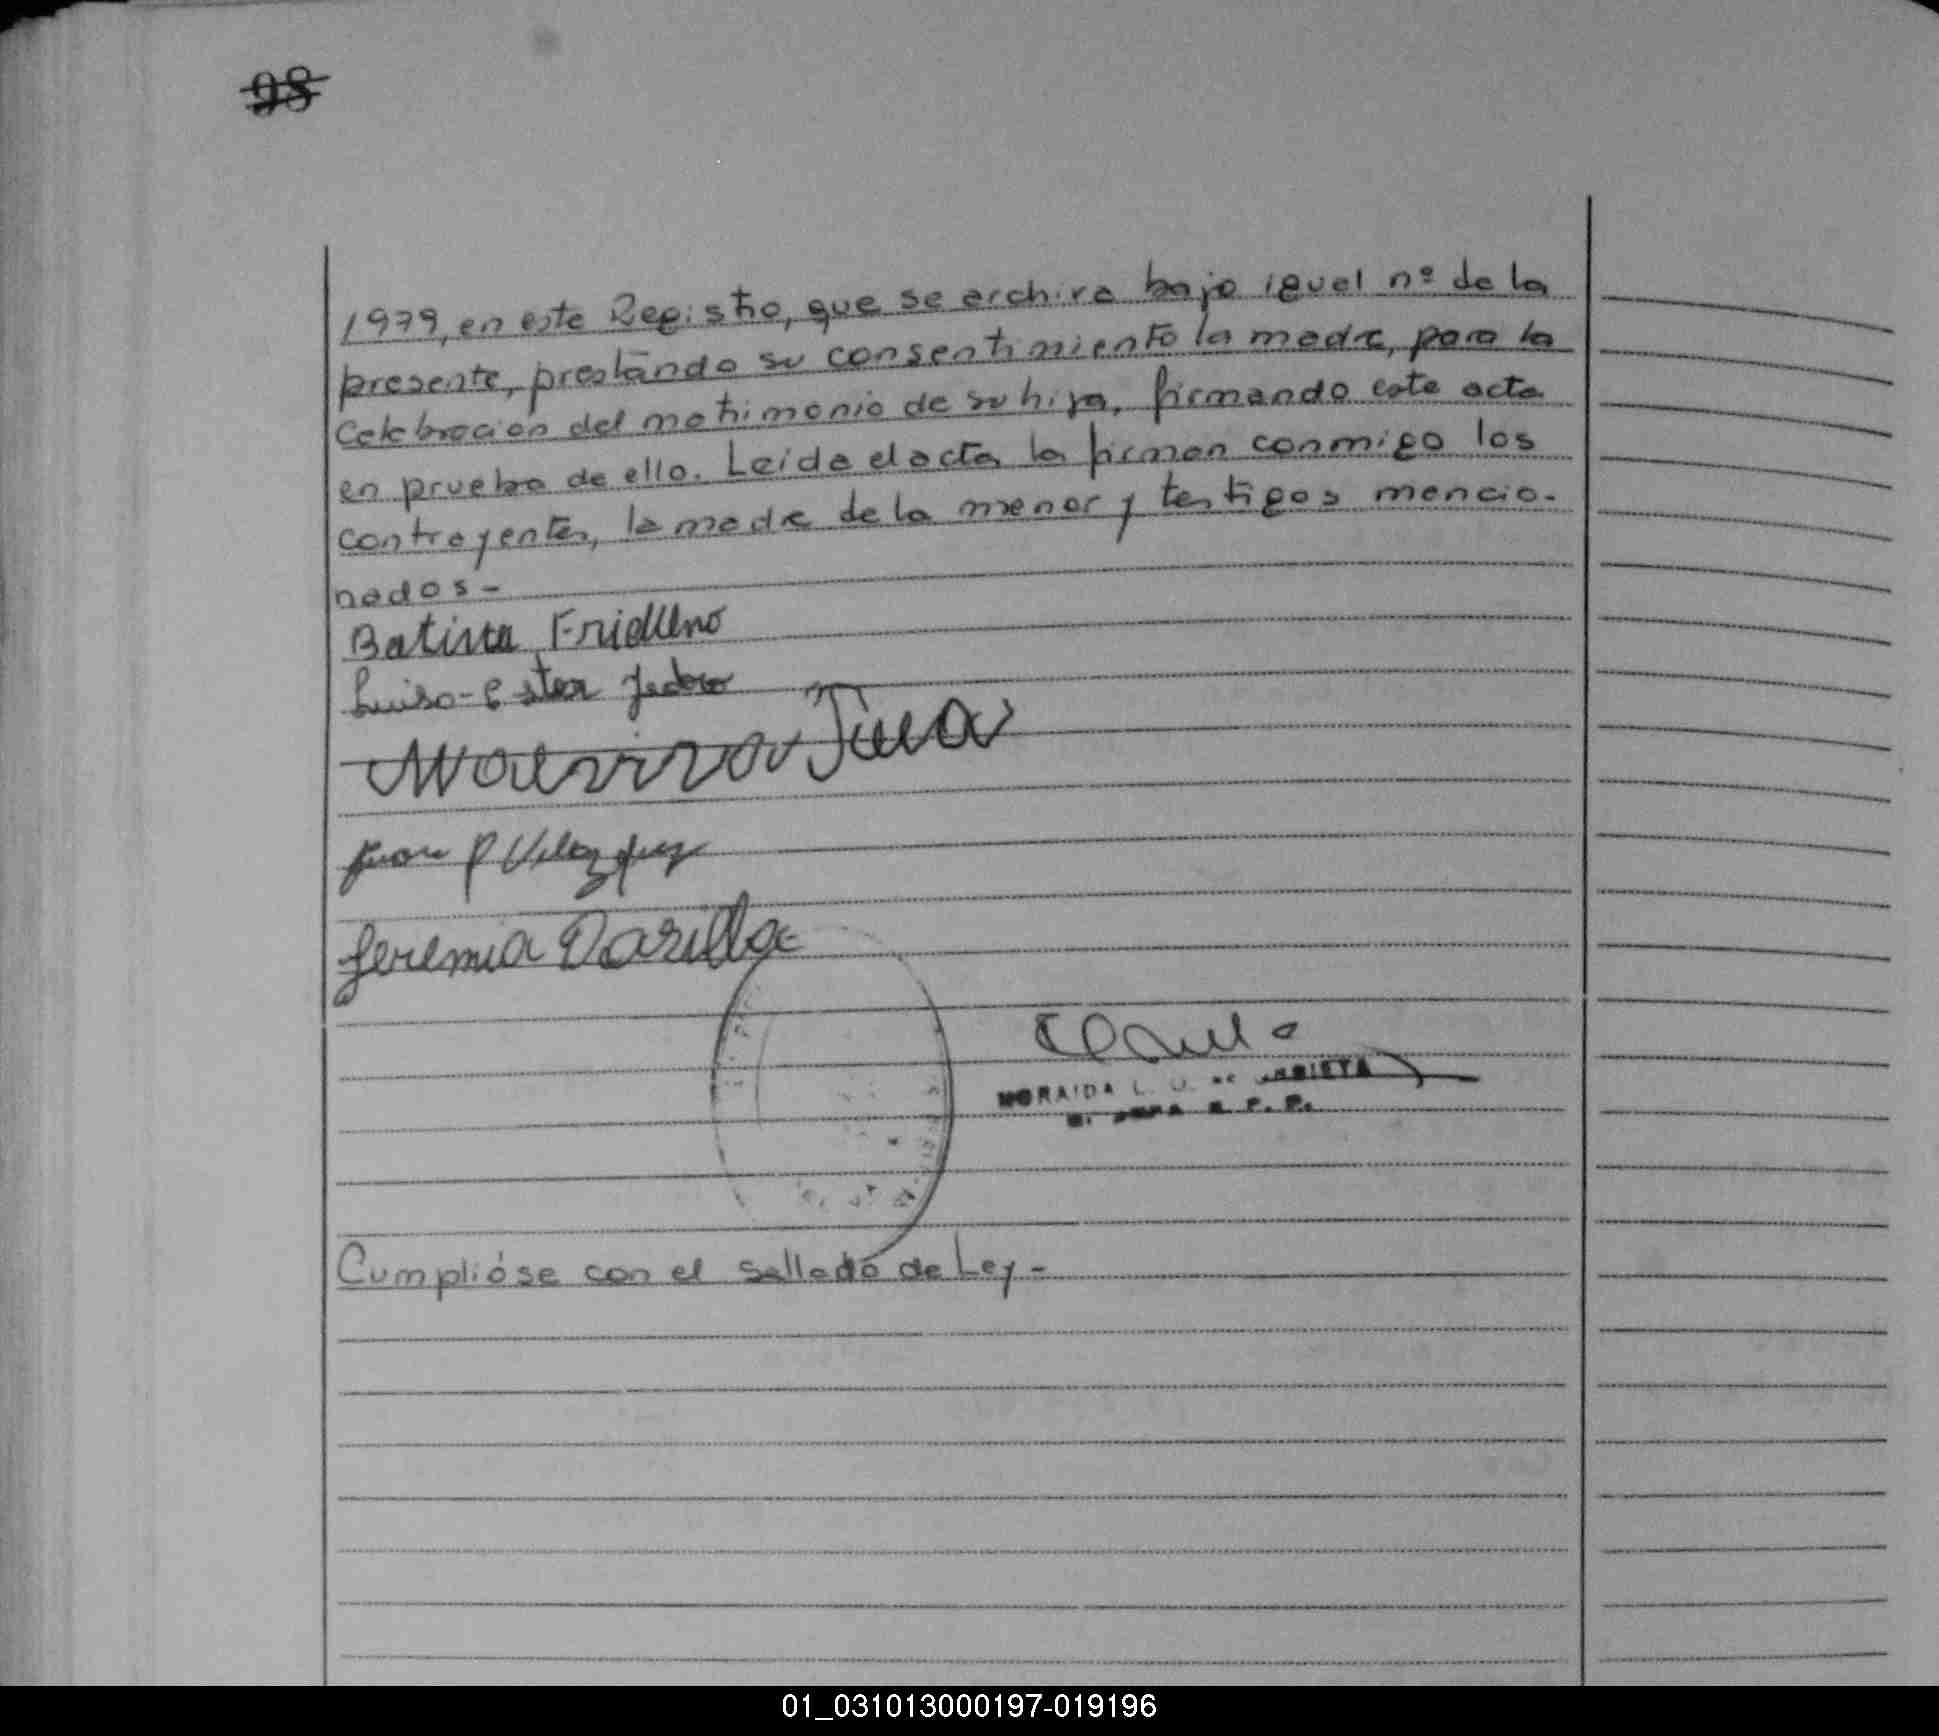 98
1979, en este Registro, que se archiva bajo igual nº de la
presente, prestando su consentimiento la madre, para la
Celebracion del matrimonio de su hija, firmando este acta
en prueba de ello. Leida el acta la firman conmigo los
contrayentes, la madre de la menor y testigos mencio-
nados-
Batista
Luisa Ester
Juan P Velazquez
Jeremia
L.
Cumplióse con el sellado de Ley-
01_031013000197-019196